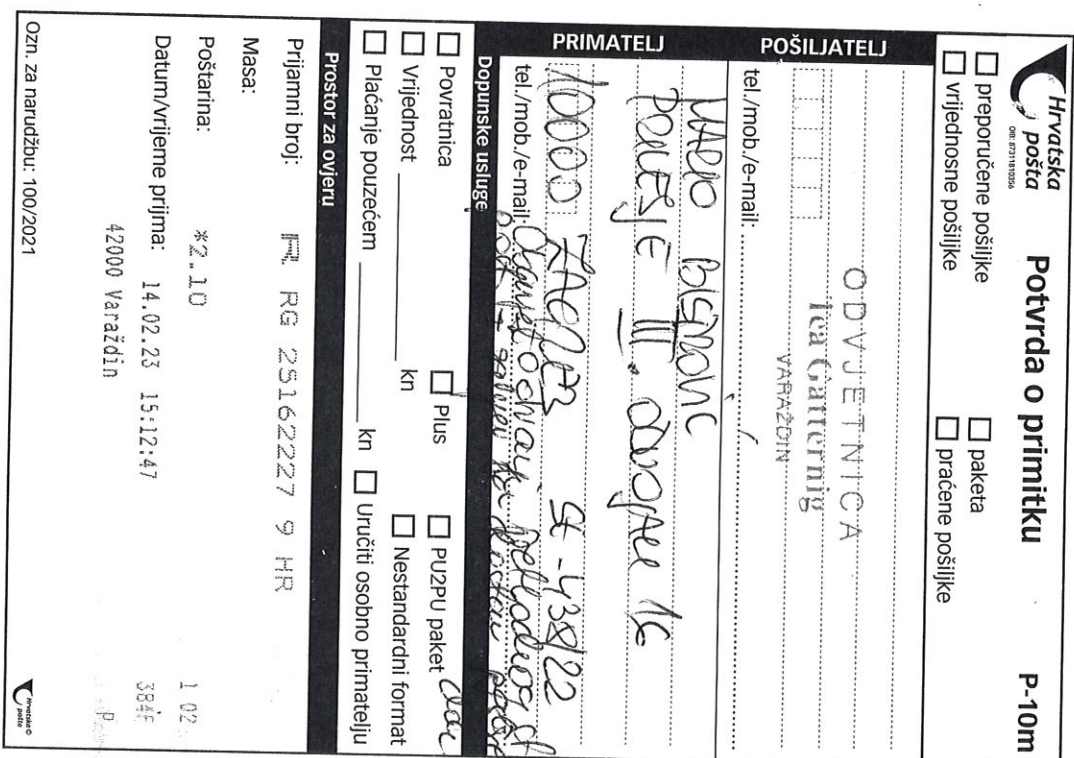 Hrvatska pošta
OIB: 87311810356
Potvrda o primitku
P-10m
preporučene pošiljke
paketa
vrijednosne pošiljke
praćene pošiljke
POŠILJATELJ
ODVJETNICA
Tea Gatternig
VARAŽDIN
tel./mob./e-mail:
PRIMATELJ
MARIO
III.
10000 ZAGREB St-438/22
tel./mob./e-mail:
Dopunske usluge
Povratnica
Plus
PU2PU paket
Vrijednost kn
Nestandardni format
Plaćanje pouzećem kn
Uručiti osobno primatelju
Prostor za ovjeru
Prijamni broj: R RG 25162227 9 HR
Masa:
Poštarina: *2.10
1 02
Datum/vrijeme prijma: 14.02.23 15:12:47
42000 Varaždin
Ozn. za narudžbu: 100/2021
Hrvatska pošta